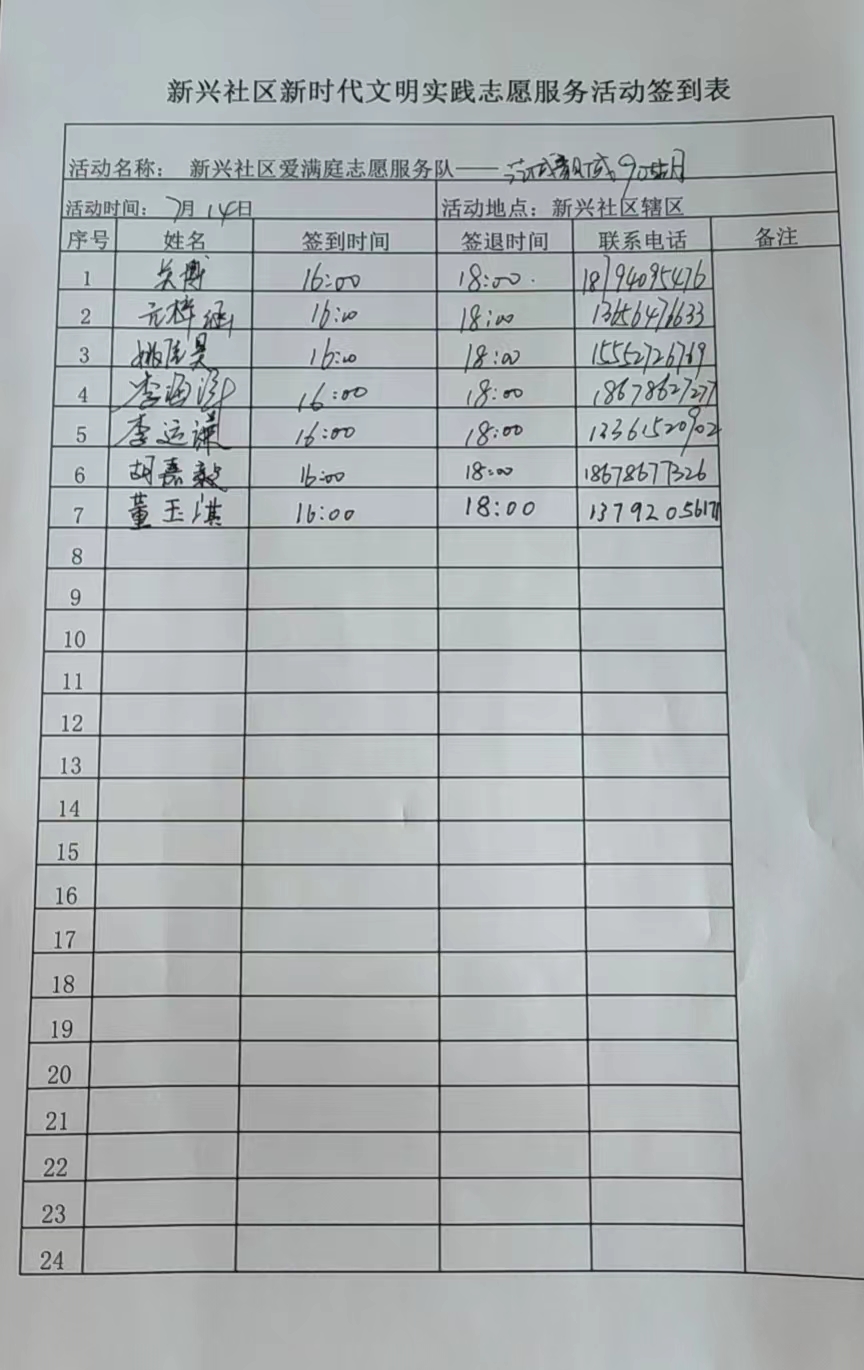 新兴社区新时代文明实践志愿服务活动签到表
活动名称： 新兴社区爱满庭志愿服务队——
活动时间： 7月14日 活动地点：新兴社区辖区
序号 姓名 签到时间 签退时间 联系电话 备注
1 吴博 16:00 18:00 18794095476
2 亓梓涵 16:00 18:00 13656476633
3 姚佳昊 16:00 18:00 15552726769
4 李海 16:00 18:00 18678627277
5 李运谦 16:00 18:00 13361520902
6 胡嘉毅 16:00 18:00 18678677326
7 董玉淇 16:00 18:00
8
9
10
11
12
13
14
15
16
17
18
19
20
21
22
23
24